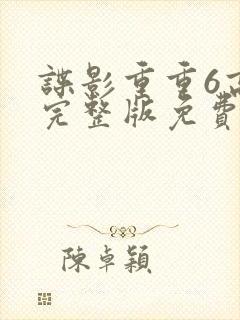 諜影重重6高
完整版免費
陳卓穎